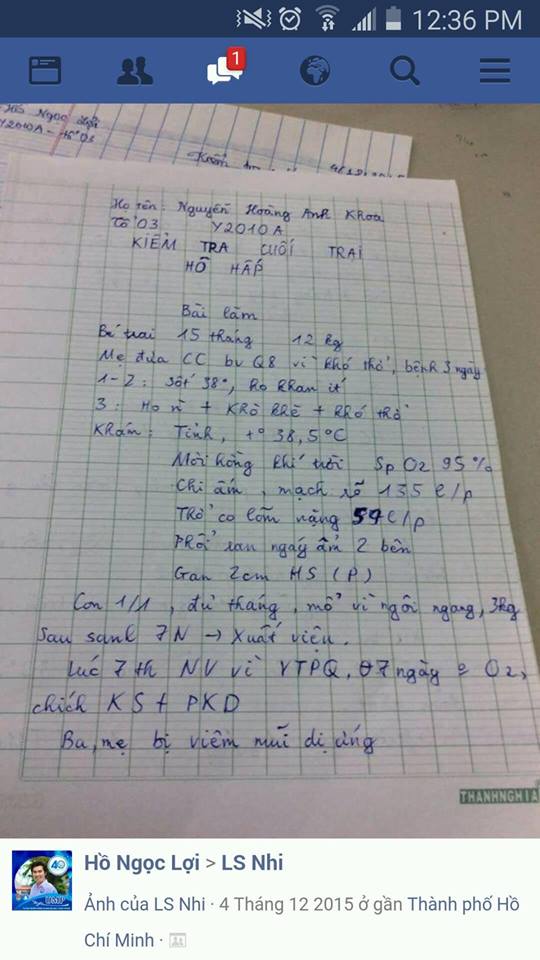 12:36 PM
1
Hồ Ngọc Lợi
Y2010A - tổ 03
Kiểm
Họ tên: Nguyễn Hoàng Anh Khoa
Tổ 03 Y2010A
KIỂM TRA CUỐI TRẠI
HÔ HẤP
Bài làm
Bé trai 15 tháng 12 kg
Mẹ đưa CC bv Q8 vì khó thở, bệnh 3 ngày
1-2: Sốt 38°, ho khan ít
3: Ho n + Khò khè + khó thở
Khám: Tỉnh, t° 38,5°C
Môi hồng khí trời SpO2 95%
Chi ấm, mạch rõ 135 l/p
Thở co lõm nặng 57 l/p
Phổi ran ngáy ẩm 2 bên
Gan 2cm HS (P)
Con 1/1, đủ tháng, mổ vì ngôi ngang, 3kg
Sau sanh 7N → Xuất viện.
Lúc 7th NV vì VTPQ, 7 ngày = O2,
chích KS + PKD
Ba, mẹ bị viêm mũi dị ứng
THANHNGHIA
Hồ Ngọc Lợi > LS Nhi
Ảnh của LS Nhi · 4 Tháng 12 2015 ở gần Thành phố Hồ
Chí Minh ·